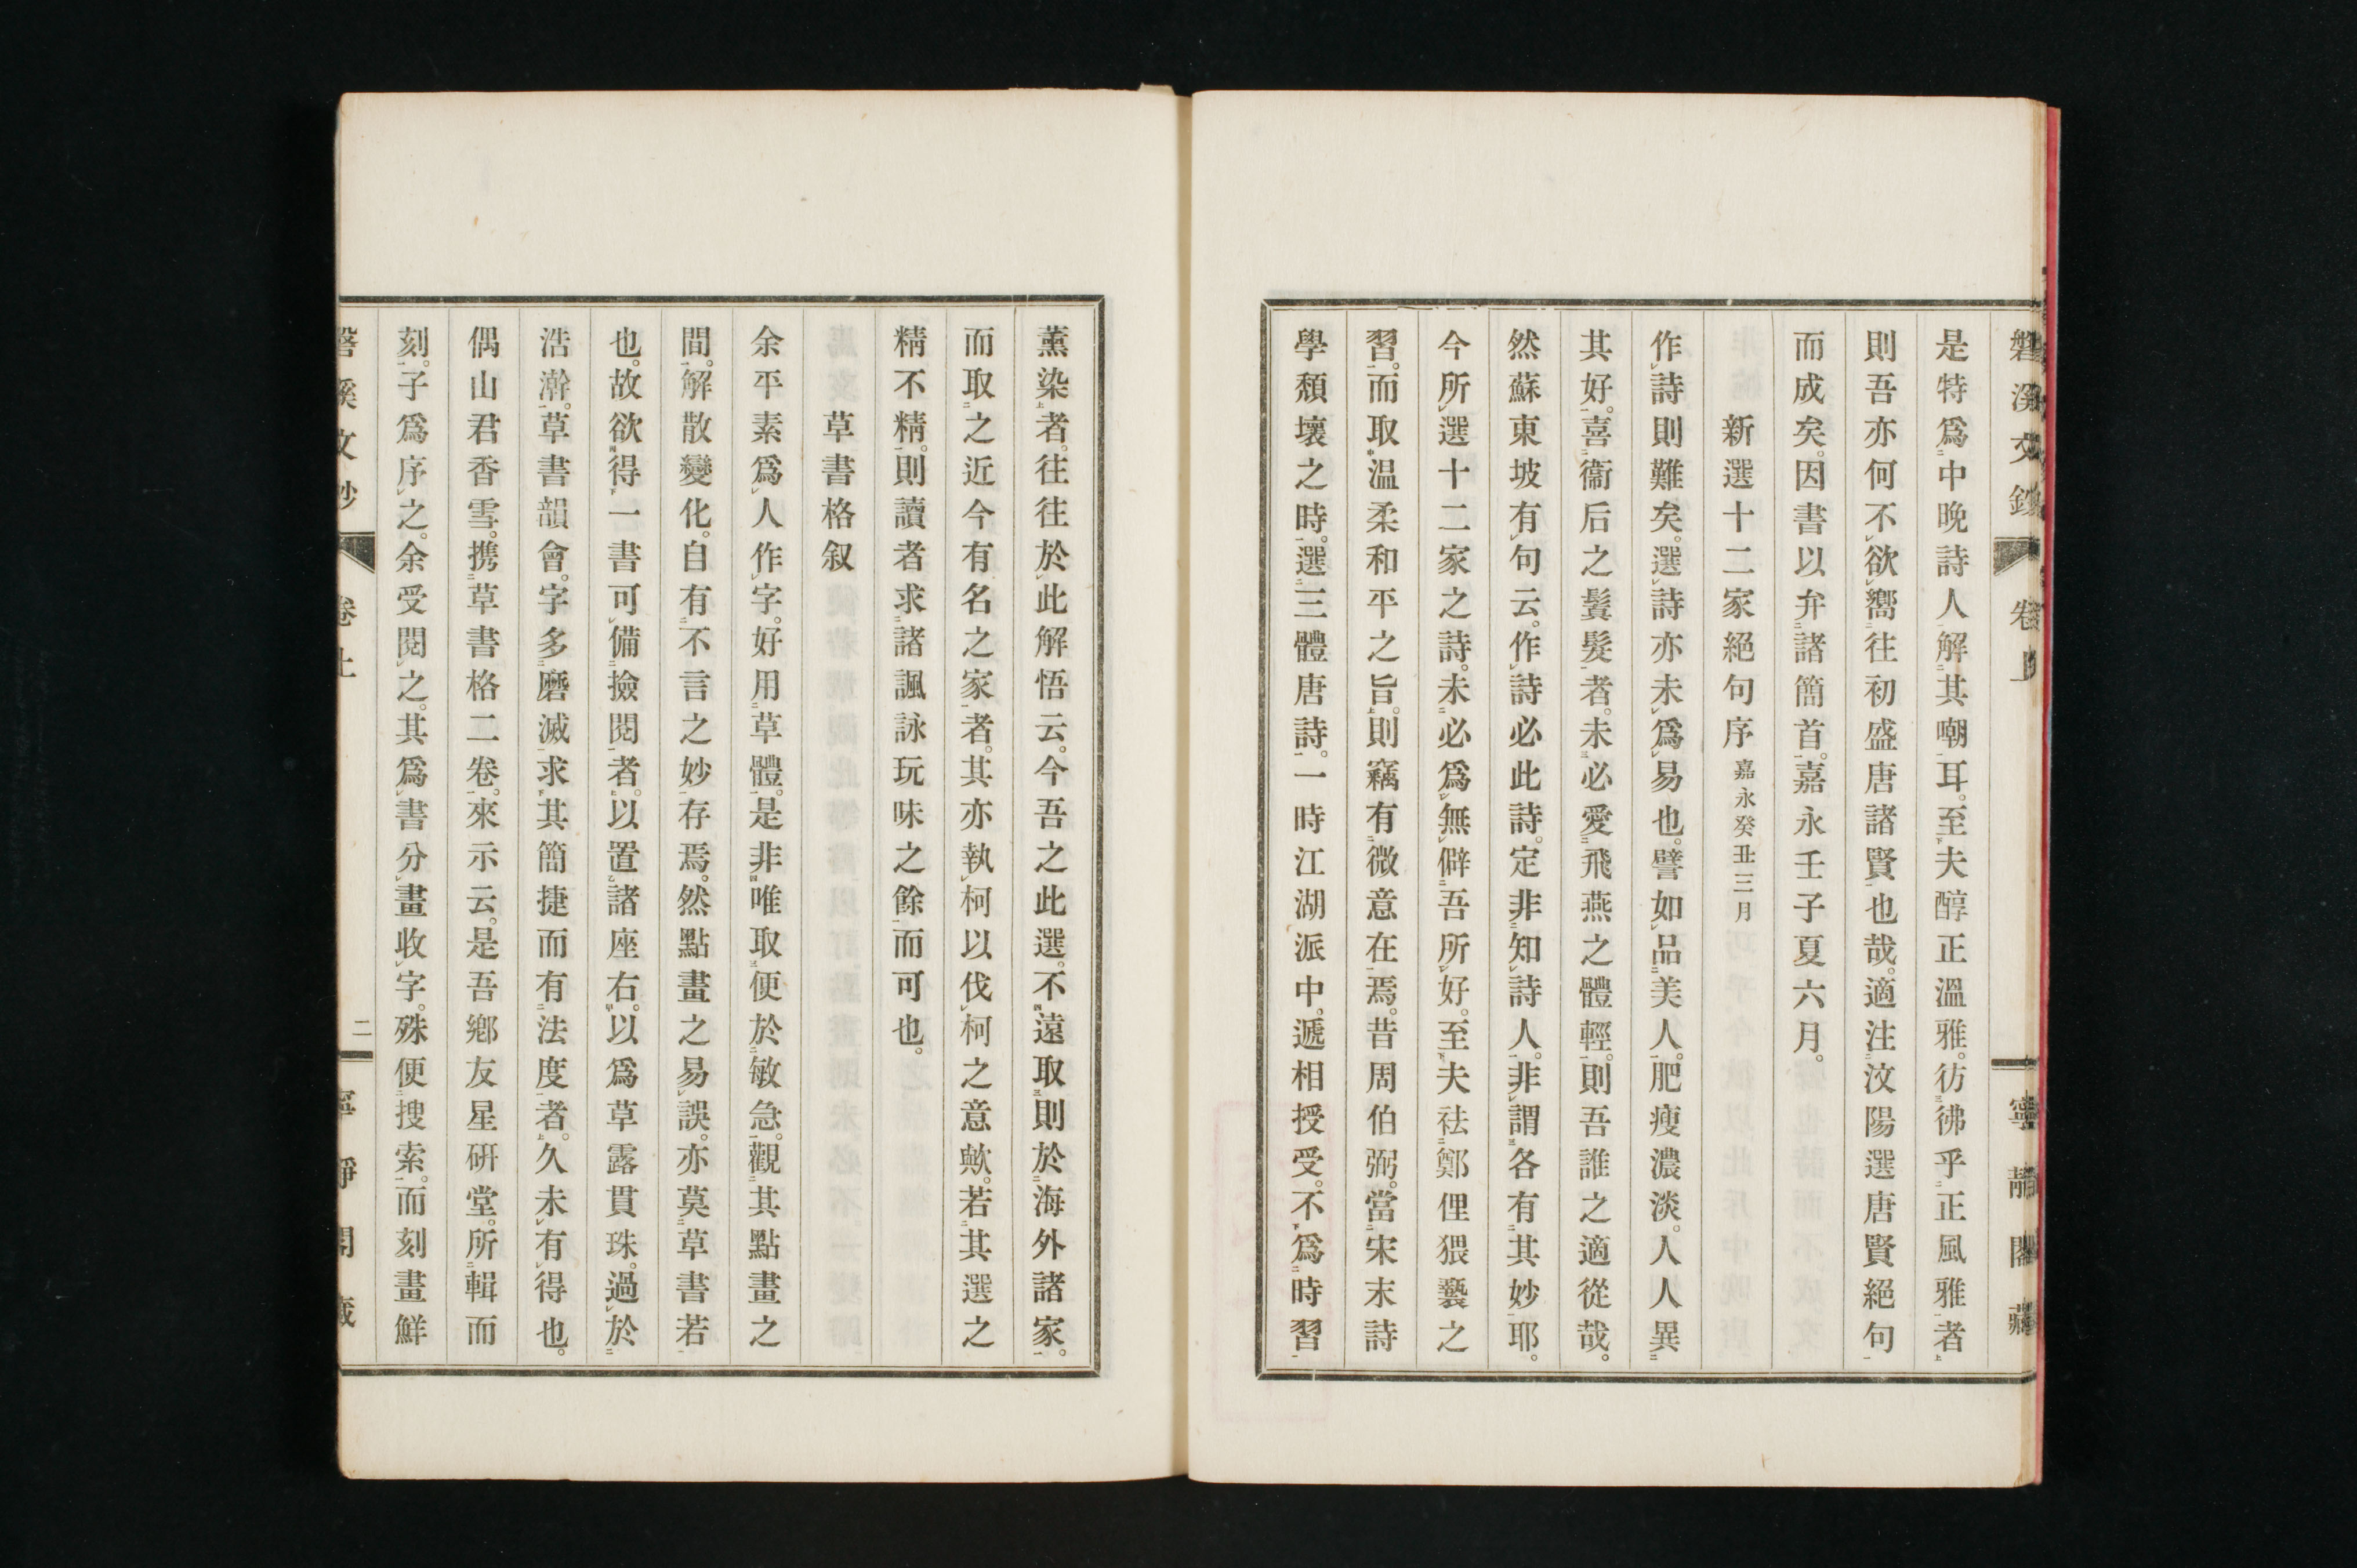 磐溪文鈔 卷上 寧靜閣藏
是特爲中晩詩人解其嘲耳。至夫醇正溫雅。彷彿乎正風雅者
則吾亦何不欲嚮往初盛唐諸賢也哉。適注汶陽選唐賢絕句
而成矣。因書以弁諸簡首。嘉永壬子夏六月。
新選十二家絕句序 嘉永癸丑三月
作詩則難矣。選詩亦未爲易也。譬如品美人。肥瘦濃淡。人人異
其好。喜衞后之鬒髮者。未必愛飛燕之體輕。則吾誰之適從哉。
然蘇東坡有句云。作詩必此詩。定非知詩人。非謂各有其妙耶。
今所選十二家之詩。未必爲無僻吾所好。至夫祛鄭俚猥褻之
習。而取温柔和平之旨。則竊有微意在焉。昔周伯弼。當宋末詩
學頹壞之時。選三體唐詩。一時江湖派中。遞相授受。不爲時習
薰染者。往往於此解悟云。今吾之此選。不遠取則於海外諸家。
而取之近今有名之家者。其亦執柯以伐柯之意歟。若其選之
精不精。則讀者求諸諷詠玩味之餘而可也。
草書格叙
余平素爲人作字。好用草體。是非唯取便於敏急。觀其點畫之
間。解散變化。自有不言之妙存焉。然點畫之易誤。亦莫草書若
也。故欲得一書可備撿閱者。以置諸座右。以爲草露貫珠。過於
浩瀚。草書韻會。字多磨滅。求其簡捷而有法度者。久未有得也。
偶山君香雪。携草書格二卷。來示云。是吾鄕友星研堂。所輯而
刻。子爲序之。余受閱之。其爲書分畫收字。殊便搜索。而刻畫鮮
磐溪文鈔 卷上 二 寧靜閣藏